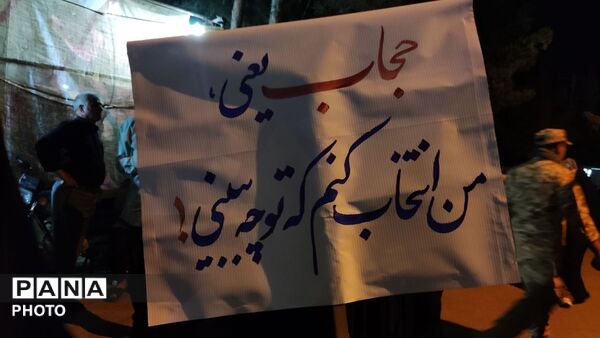 حجاب یعنی،
من انتخاب کنم که تو چه ببینی!
PANA
PHOTO